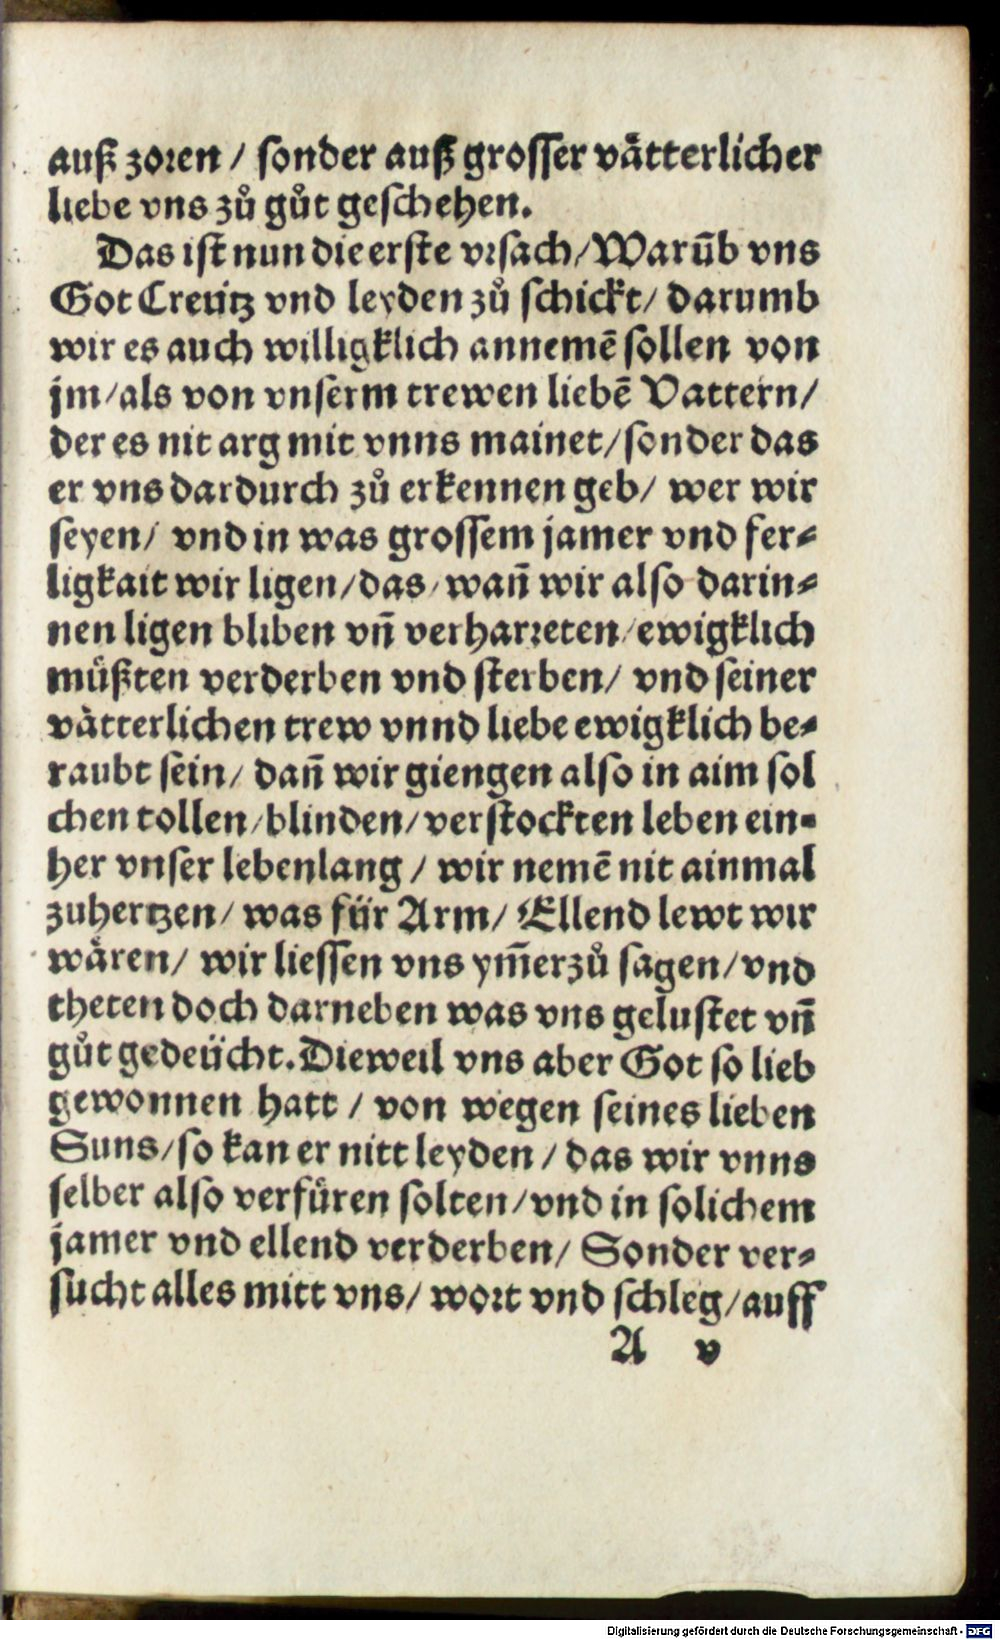 auß zoren / sonder auß grosser vätterlicher
liebe vns zů gůt geschehen.
Das ist nun die erste vrsach / Warūb vns
Got Creütz vnd leyden zů schickt / darumb
wir es auch willigklich annemē sollen von
jm / als von vnserm trewen liebē Vattern /
der es nit arg mit vnns mainet / sonder das
er vns dardurch zů erkennen geb / wer wir
seyen / vnd in was grossem jamer vnd fer⸗
ligkait wir ligen / das / wañ wir also darin⸗
nen ligen bliben vñ verharreten / ewigklich
müßten verderben vnd sterben / vnd seiner
vätterlichen trew vnnd liebe ewigklich be⸗
raubt sein / dañ wir giengen also in aim sol
chen tollen / blinden / verstockten leben ein⸗
her vnser lebenlang / wir nemē nit ainmal
zuhertzen / was für Arm / Ellend lewt wir
wären / wir liessen vns ym̄erzů sagen / vnd
theten doch darneben was vns gelustet vñ
gůt gedeücht. Dieweil vns aber Got so lieb
gewonnen hatt / von wegen seines lieben
Suns / so kan er nitt leyden / das wir vnns
selber also verfüren solten / vnd in solichem
jamer vnd ellend verderben / Sonder ver⸗
sucht alles mitt vns / wort vnd schleg / auff
A v
Digitalisierung gefördert durch die Deutsche Forschungsgemeinschaft - DFG